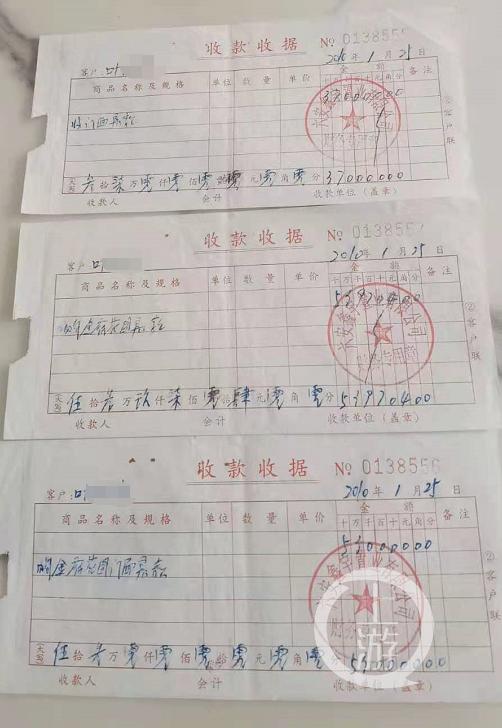 收款收据 № 0138555
2010 年 1 月 25 日
客户:叶
商品名称及规格 单位 数量 单价 金额 备注
十万千百十元角分
37000000
购门面房款
大写 叁拾柒万零仟零佰零拾零元零角零分 37000000
收款人 会计 收款单位(盖章)
②客户联
收款收据 № 0138557
2010 年 1 月 25 日
客户:叶
商品名称及规格 单位 数量 单价 金额 备注
十万千百十元角分
53970400
购金府花园房款
财务专用章
大写 伍拾叁万玖仟柒佰零拾肆元零角零分 53970400
收款人 会计 收款单位(盖章)
②客户联
收款收据 № 0138556
2010 年 1 月 25 日
客户:叶
商品名称及规格 单位 数量 单价 金额 备注
十万千百十元角分
53000000
购金府花园门面房款
大写 伍拾叁万零仟零佰零拾零元零角零分 53000000
收款人 会计 收款单位(盖章)
②客户联
游